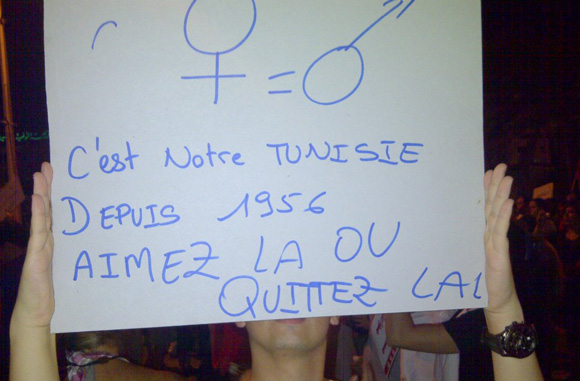 ♀ = ♂
C'est Notre TUNISIE
DEPUIS 1956
AIMEZ LA OU
QUITTEZ LA!